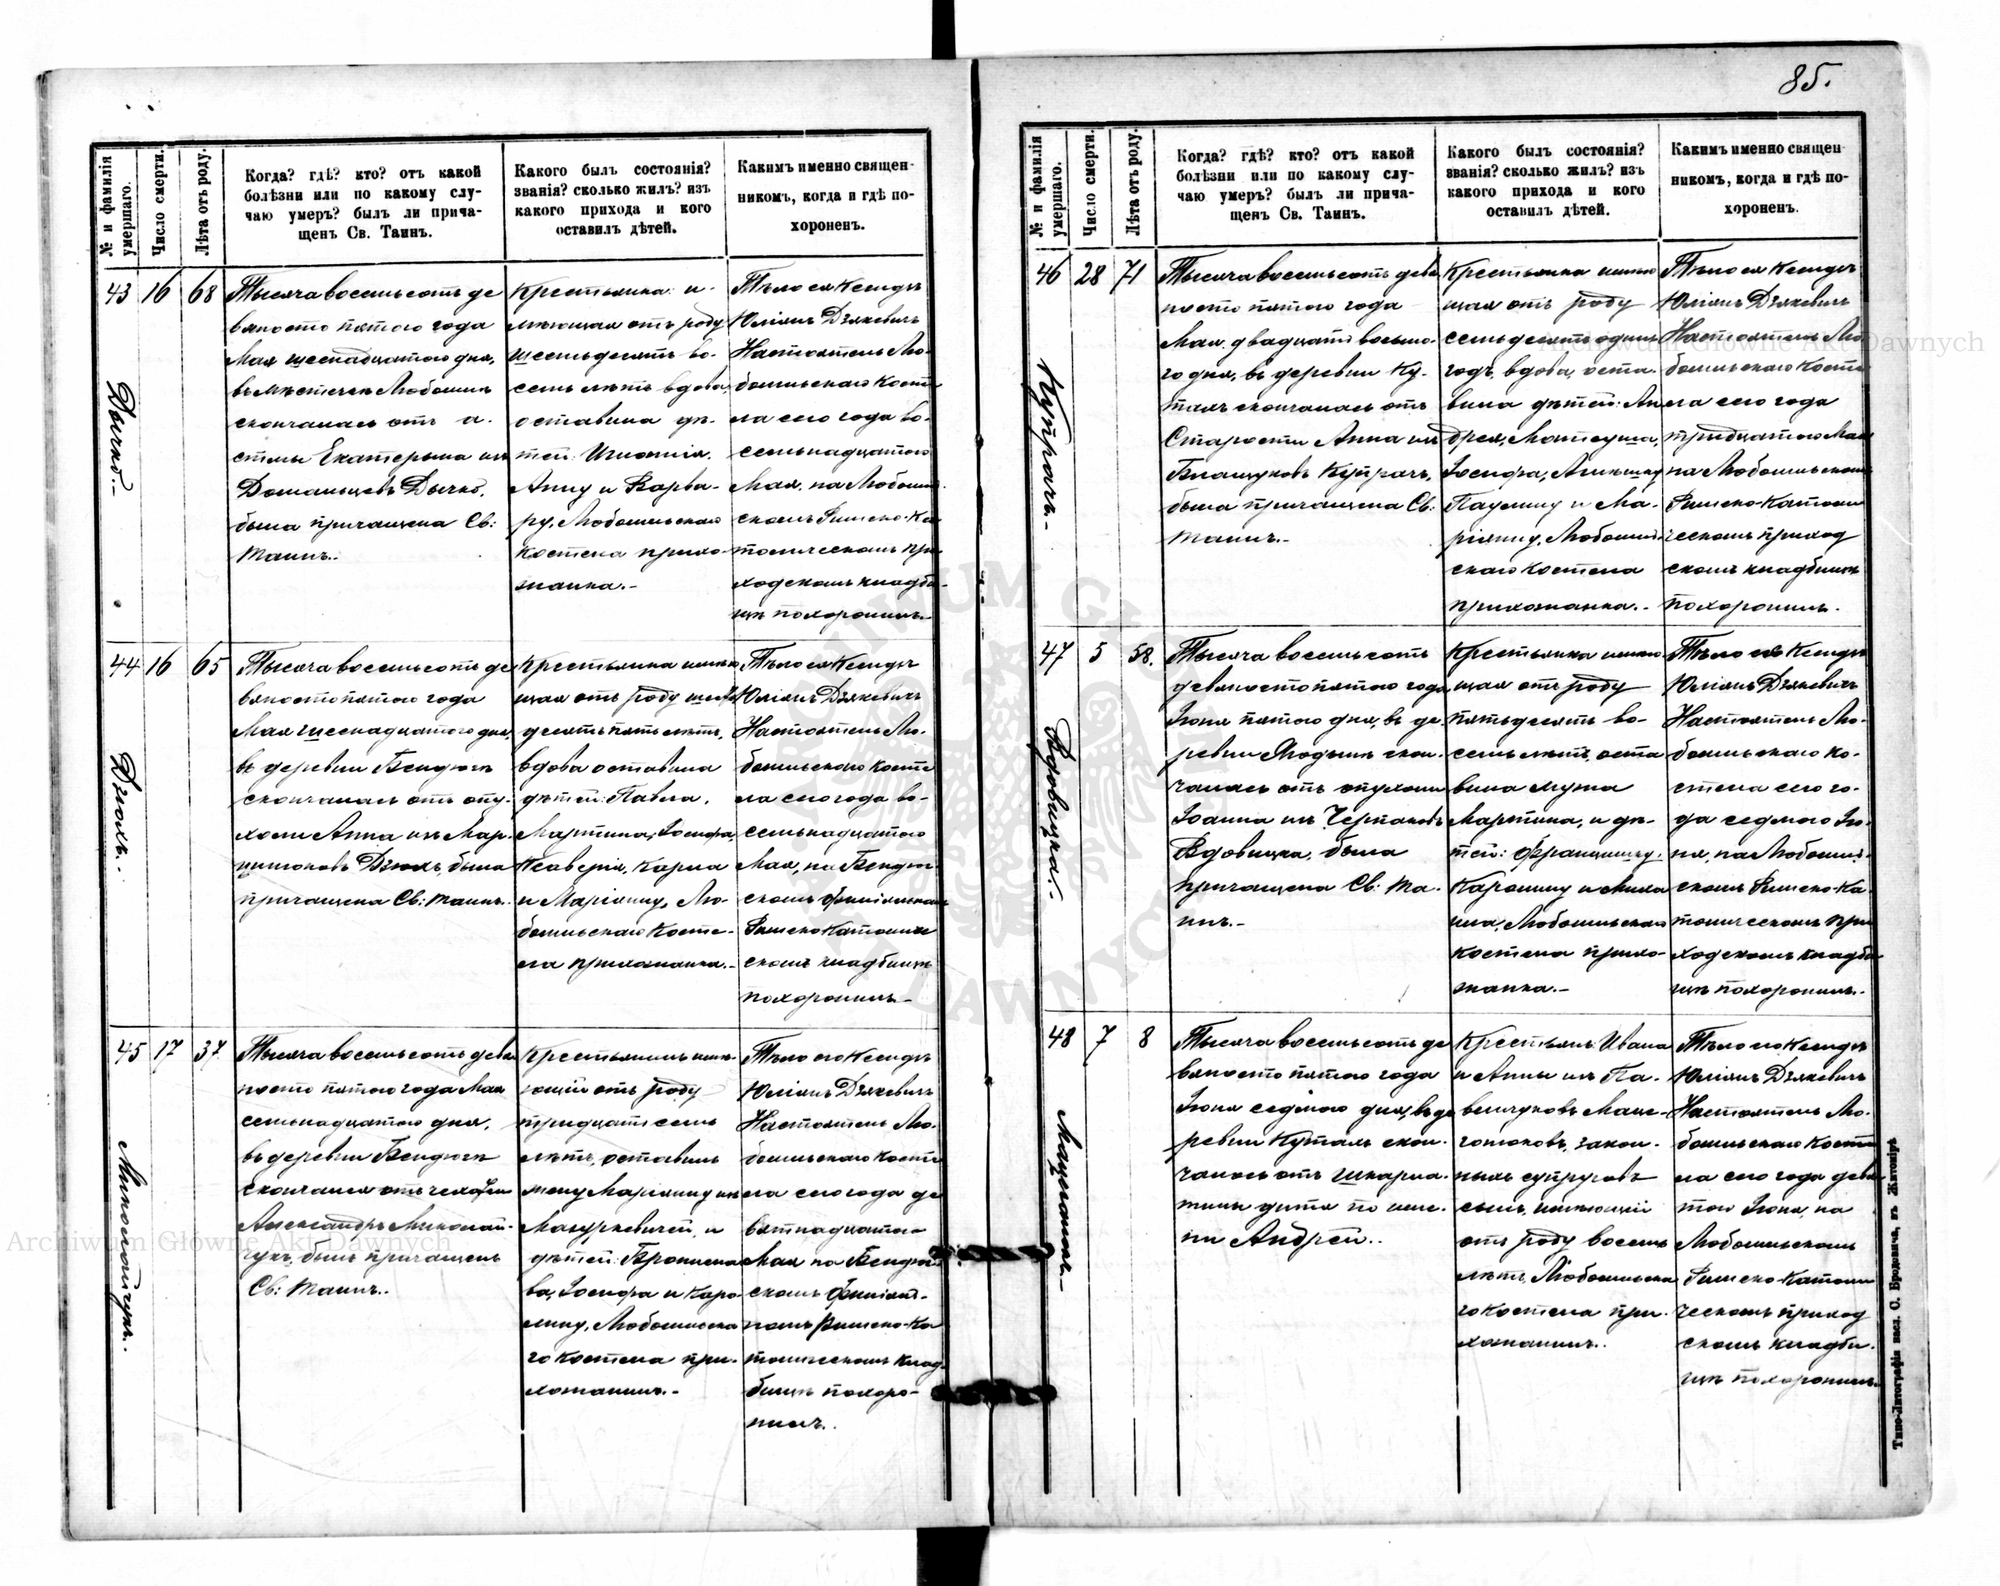 85.
№ и фамилія умершаго.
Число смерти.
Лѣта отъ роду.
Когда? гдѣ? кто? отъ какой
болѣзни или по какому слу-
чаю умеръ? былъ ли прича-
щенъ Св. Таинъ.
Какого былъ состоянія?
званія? сколько жилъ? изъ
какого прихода и кого
оставилъ дѣтей.
Какимъ именно священ-
никомъ, когда и гдѣ по-
хороненъ.
43
16
68
Дычко.-
Тысяча восемьсотъ де
вяносто пятого года
Мая шеснадцатого дня,
въ мѣстечкѣ Любомлѣ
скончалась отъ а-
стмы Екатерына изъ
Доманьцевъ Дычко,
была причащена Св:
Таинъ.-
Крестьянка и-
мѣющая отъ роду
шестьдесятъ во-
семь лѣтъ вдова,
оставила дѣ-
тей:
Анну и Варва-
ру, Любомльскаго
костела прихо-
жанка.-
Тѣло ея Ксендзъ
Юліянъ Дзякевичъ
Настоятель Лю-
бомльскаго косте
ла сего года во-
семьнадцатого
Мая, на Любомль
скомъ Римско-Ка
толическомъ при
ходскомъ кладби-
щѣ похоронилъ.-
44
16
65
Дзюхъ.-
Тысяча восемьсотъ де
вяносто пятого года
Мая шеснадцатого дня,
въ деревни Бендюгѣ
скончалась отъ опу-
холи Анна изъ Мар-
цинюковъ Дзюхъ, была
причащена Св: Таинъ.-
Крестьянка имѣю
щая отъ роду шесть
десятъ пять лѣтъ,
вдова оставила
дѣтей: Павла,
Мартина, Іосифа,
Ксаверія, Карла
и Маріянну, Лю-
бомльскаго косте-
ла прихожанка.-
Тѣло ея Ксендзъ
Юліянъ Дзякевичъ
Настоятель Лю-
бомльскаго косте
ла сего года во-
семьнадцатого
Мая, на Бендюг-
скомъ филіяльномъ
Римско Католиче
скомъ кладбищѣ
похоронилъ.-
45
17
37
Миколайчукъ.-
Тысяча восемьсотъ девя
носто пятого года Мая
семьнадцатого дня,
въ деревни Бендюгѣ
скончался отъ чахотки
Александръ Миколай-
чукъ, былъ причащенъ
Св: Таинъ.-
Крестьянинъ имѣ-
ющій отъ роду
тридцать семь
лѣтъ, оставилъ
жену Маріянну изъ
Мазуркевичей, и
дѣтей: Бронисла
ва, Іосифа и Каро-
лину, Любомльска
го костела при-
хожанинъ.-
Тѣло его Ксендзъ
Юліянъ Дзякевичъ
Настоятель Лю-
бомльскаго косте
ла сего года де
вятнадцатого
Мая на Бендюг-
скомъ филіяль-
номъ Римско-Ка
толическомъ клад-
бищѣ похоро-
нилъ.-
№ и фамилія умершаго.
Число смерти.
Лѣта отъ роду.
Когда? гдѣ? кто? отъ какой
болѣзни или по какому слу-
чаю умеръ? былъ ли прича-
щенъ Св. Таинъ.
Какого былъ состоянія?
званія? сколько жилъ? изъ
какого прихода и кого
оставилъ дѣтей.
Какимъ именно священ
никомъ, когда и гдѣ по-
хороненъ.
46
28
71
Купрачъ.-
Тысяча восемьсотъ девя
носто пятого года
Мая двадцать восьмо-
го дня, въ деревни Ку-
тахъ скончалась отъ
Старости Анна изъ
Влащуковъ Купрачъ,
была причащена Св:
Таинъ.-
Крестьянка имѣю
щая отъ роду
семьдесятъ одинъ
годъ, вдова, оста-
вила дѣтей: Ан
дрея, Матеуша,
Іосифа, Агнѣшку,
Паулину и Ма-
ріянну, Любомль
скаго костела
прихожанка.-
Тѣло ея Ксендзъ
Юліянъ Дзякевичъ
Настоятель Лю
бомльскаго косте
ла сего года
тридцатого Мая
на Любомльскомъ
Римско-Католи
ческомъ приход
скомъ кладбищѣ
похоронилъ.-
47
5
58.
Вдовицка.-
Тысяча восемьсотъ
девяносто пятого года
Іюня пятого дня, въ де-
ревни скон-
чалась отъ опухоли
Іоанна изъ Черпаковъ
Вдовицка, была
причащена Св: Та-
инъ.-
Крестьянка имѣю
щая отъ роду
пятьдесятъ во-
семь лѣтъ, оста
вила мужа
Мартина, и дѣ-
тей: Францишку,
Каролину и Миха
ила, Любомльскаго
костела прихо-
жанка.-
Тѣло ея Ксендзъ
Юліянъ Дзякевичъ
Настоятель Лю-
бомльскаго ко-
стела сего го-
да седмого Ію-
ня, на Любомль-
скомъ Римско-Ка-
толическомъ при
ходскомъ кладби
щѣ похоронилъ.-
48
7
8
Мацюкъ.-
Тысяча восемьсотъ де
вяносто пятого года
Іюня седмого дня, въ де
ревни Кутахъ скон-
чалось отъ шкарла-
тины дитя по име-
ни Андрей.-
Крестьянъ: Ивана
и Анны изъ Па-
законн-
ныхъ супруговъ
сынъ, имѣющій
отъ роду восемь
лѣтъ, Любомльска
го костела при-
хожанинъ.-
Тѣло его Ксендзъ
Юліянъ Дзякевичъ
Настоятель Лю-
бомльскаго косте
ла сего года девя
того Іюня, на
Любомльскомъ
Римско-Католи
ческомъ приход
скомъ кладби-
щѣ похоронилъ.-
Типо-Литографія насл. С. Бродовича, въ Житомірѣ
Archiwum Główne Akt Dawnych
Archiwum Główne Akt Dawnych